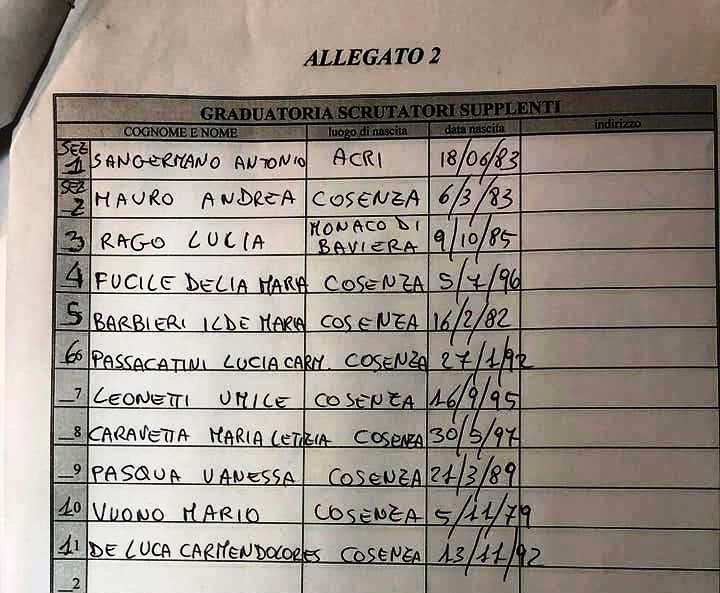 ALLEGATO 2
GRADUATORIA SCRUTATORI SUPPLENTI
COGNOME E NOME luogo di nascita data nascita indirizzo
SEZ 1 SANGERMANO ANTONIO ACRI 18/06/83
SEZ 2 MAURO ANDREA COSENZA 6/3/83
3 RAGO LUCIA MONACO DI BAVIERA 9/10/85
4 FUCILE DELIA MARIA COSENZA 5/7/96
5 BARBIERI ILDE MARIA COSENZA 16/2/82
6 PASSACATINI LUCIA CARM. COSENZA 27/1/92
7 LEONETTI UMILE COSENZA 16/9/95
8 CARAVETTA MARIA LETIZIA COSENZA 30/5/97
9 PASQUA VANESSA COSENZA 21/3/89
10 VUONO MARIO COSENZA 5/11/79
11 DE LUCA CARMENDOLORES COSENZA 13/11/92
2